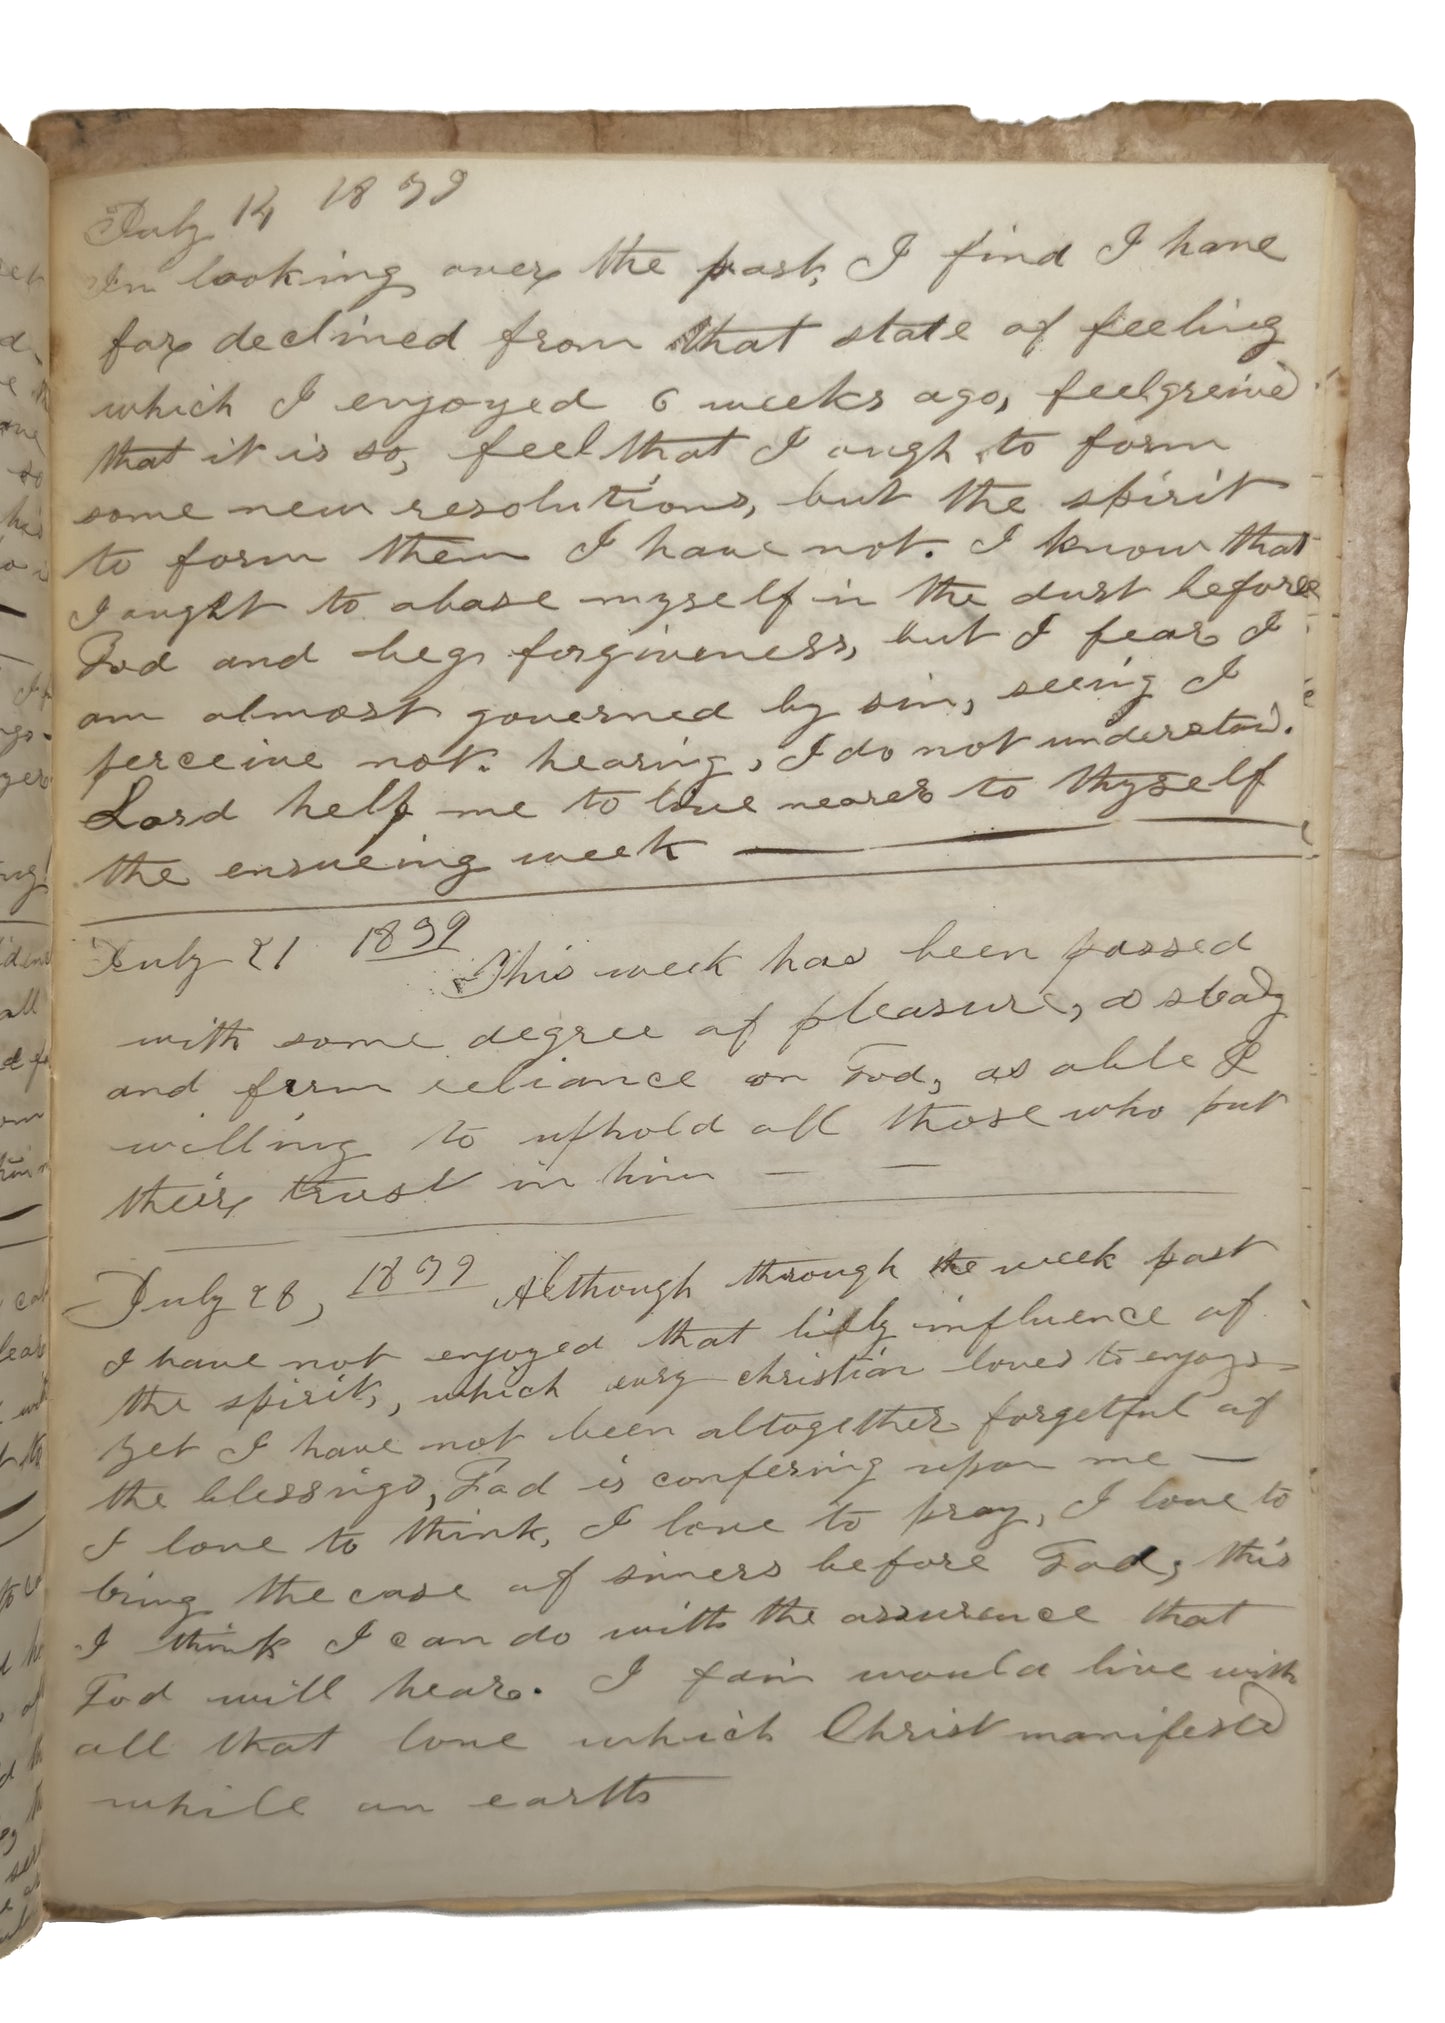 July 14 1839
In looking over the past, I find I have
far declined from that state of feeling
which I enjoyed 6 weeks ago, feel greived
that it is so, feel that I ough to form
some new resolutions, but the spirit
to form them I have not. I know that
I ought to abase myself in the dust before
God and beg forgiveness, but I fear I
am almost governed by sin, seeing I
perceive not. hearing, I do not understand.
Lord help me to live nearer to thyself
the ensueing week
July 21 1839 This week has been passed
with some degree of pleasure, a steady
and firm reliance on God, as able &
willing to uphold all those who put
their trust in him — —
July 28, 1839 Although through the week past
I have not enjoyed that influence of
the spirit, which evry christian loves to enjoy
yet I have not been altogether forgetful of
the blessings, God is confering upon me —
I love to think, I love to pray, I love to
bring the case of sinners before God, this
I think I can do with the assurence that
God will hear. I fain would live with
all that love which Christ manifested
while on earth